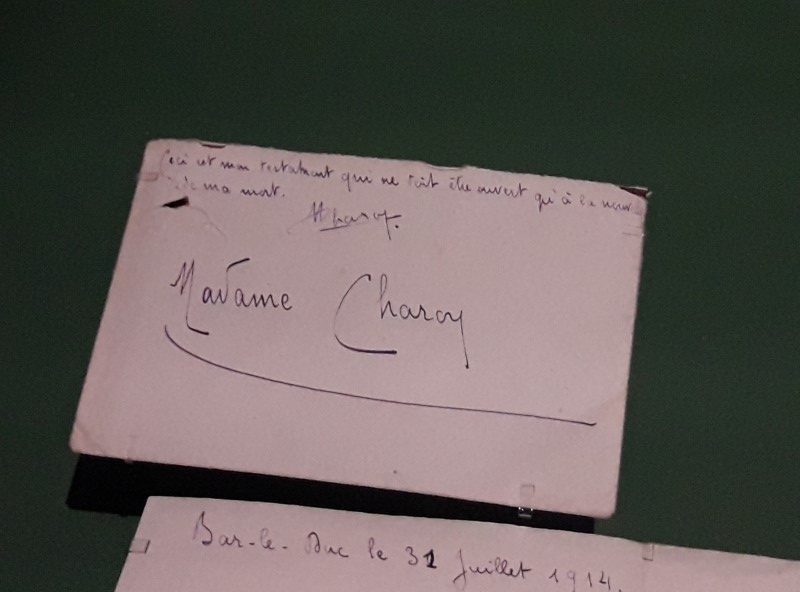 Ceci est mon testament qui ne doit être ouvert qu'à la nouv
de ma mort.
Madame Charoy
Bar-le-Duc le 31 Juillet 1914.